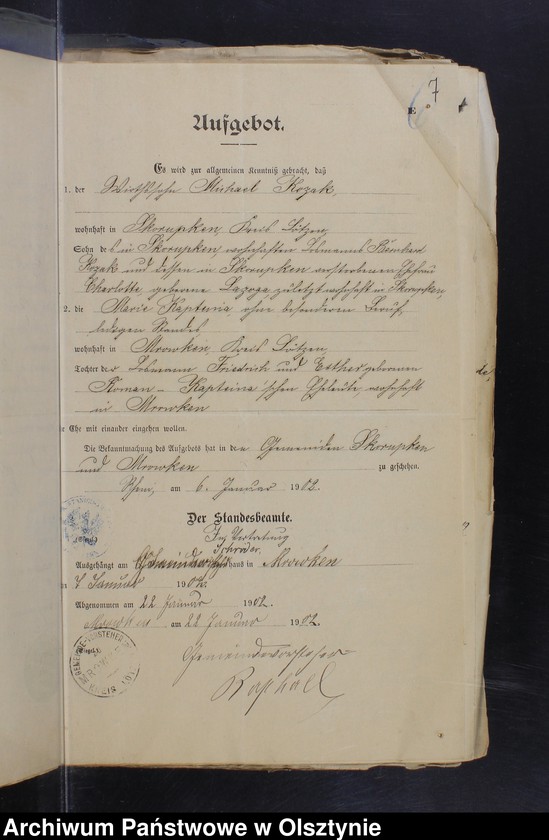 7
E
Aufgebot.
Es wird zur allgemeinen Kenntniß gebracht, daß
1. der Wirthssohn Michael Kozak,
wohnhaft in Skorupken, Kreis Lötzen,
Sohn des in Skorupken, wohnhaften Losmanns
Kozak und dessen in Skorupken verstorbenen Ehefrau
Charlotte, geborene zuletzt wohnhaft in Skorupken,
2. die Marie Kapteina, ohne besonderen Beruf,
ledigen Standes
wohnhaft in Mrowken, Kreis Lötzen,
Tochter der Losmann Friedrich und Esther geborenen
Roman - Kapteina'schen Eheleute, wohnhaft
in Mrowken
die Ehe mit einander eingehen wollen.
Die Bekanntmachung des Aufgebots hat in den Gemeinden Skorupken
und Mrowken zu geschehen.
Rhein, am 6. Januar 1902.
Der Standesbeamte.
In Vertretung
Schröder.
Ausgehängt am in Mrowken
7 Januar 1902.
Abgenommen am 22 Januar 1902.
Mrowken am 22 Januar 1902.
Gemeindevorsteher
Raphael
Archiwum Państwowe w Olsztynie